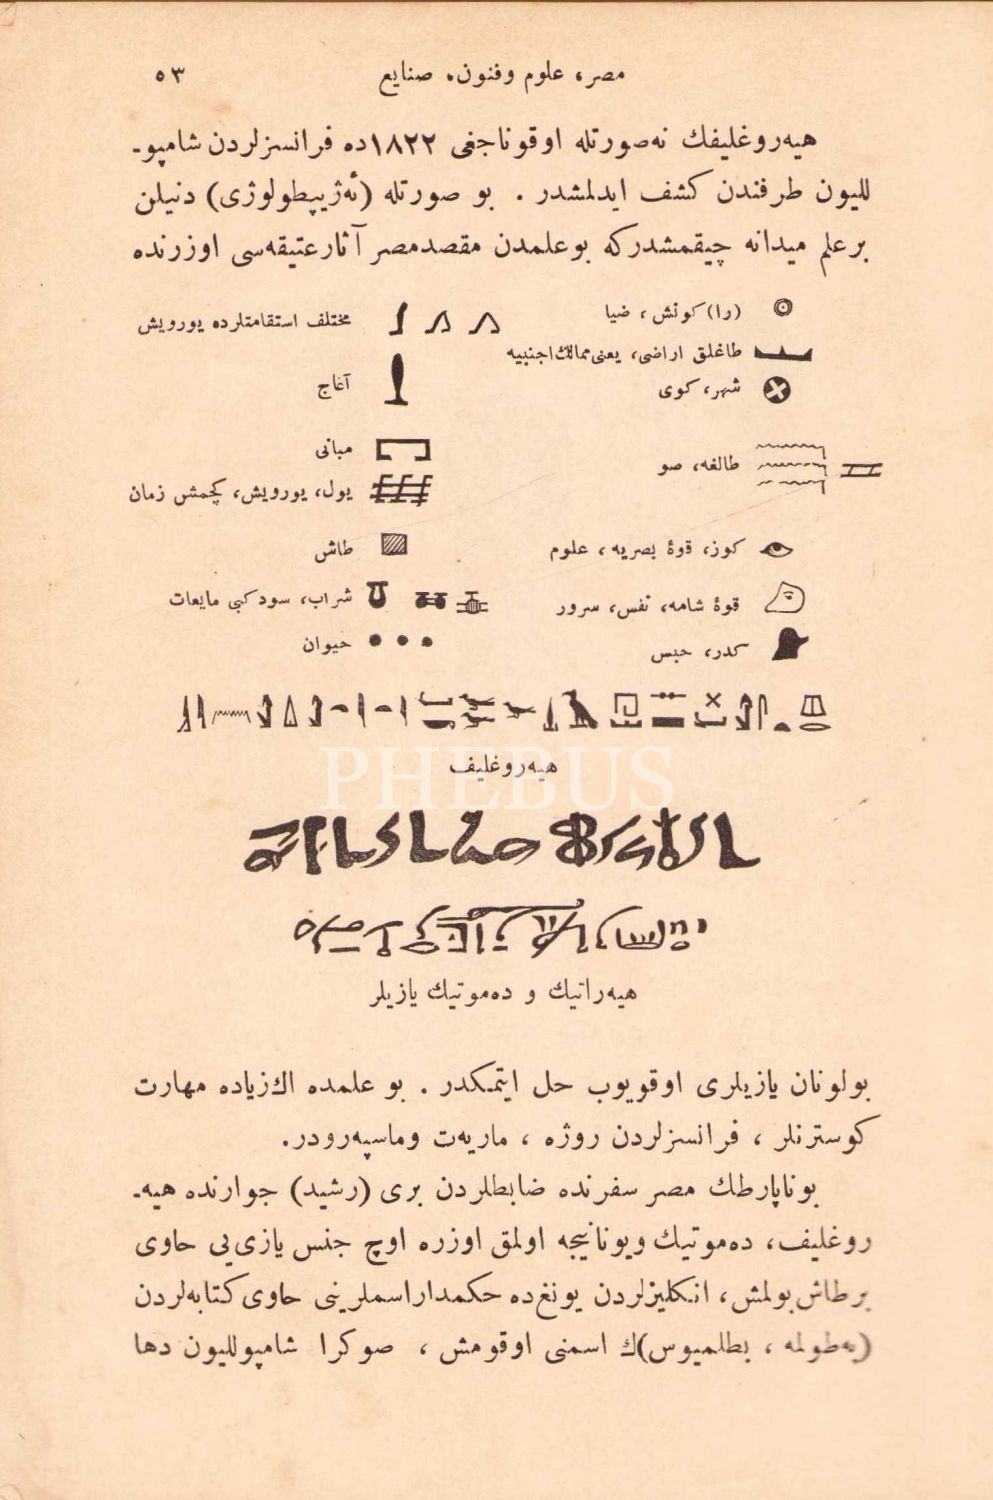 مصر، علوم وفنون، صنایع ٥٣
هیه‌روغلیفك نه‌صورتله اوقوناجغی ١٨٢٢ده فرانسزلردن شامپو-
للیون طرفندن كشف ایدلمشدر . بو صورتله (ئه‌ژیپطولوژی) دنیلن
برعلم میدانه چیقمشدركه بوعلمدن مقصدمصر آثارعتیقه‌سی اوزرنده
(را) كونش ، ضیا
طاغلق اراضی، یعنی ممالك اجنبیه
شهر، كوی
طالغه، صو
كوز، قوۀ بصریه ، علوم
قوۀ شامه، نفس، سرور
كدر، حبس
مختلف استقامتلرده یورویش
آغاج
مبانی
یول، یورویش، كچمش زمان
طاش
شراب، سود كبی مایعات
حیوان
هیه‌روغلیف
PHEBUS
هیه‌راتیك و ده‌موتیك یازیلر
بولونان یازیلری اوقویوب حل ایتمكدر . بو علمده اك زیاده مهارت
كوسترنلر ، فرانسزلردن روژه ، ماریه‌ت وماسپه‌رودر.
بوناپارطك مصر سفرنده ضابطلردن بری (رشید) جوارنده هیه-
روغلیف، ده‌موتیك ویونانیجه اولمق اوزره اوچ جنس یازی‌یی حاوی
برطاش بولمش، انكلیزلردن یونغ‌ده حكمداراسملرینی حاوی كتابه‌لردن
(به‌طولمه ، بطلمیوس)ك اسمنی اوقومش ، صوكرا شامپوللیون دها